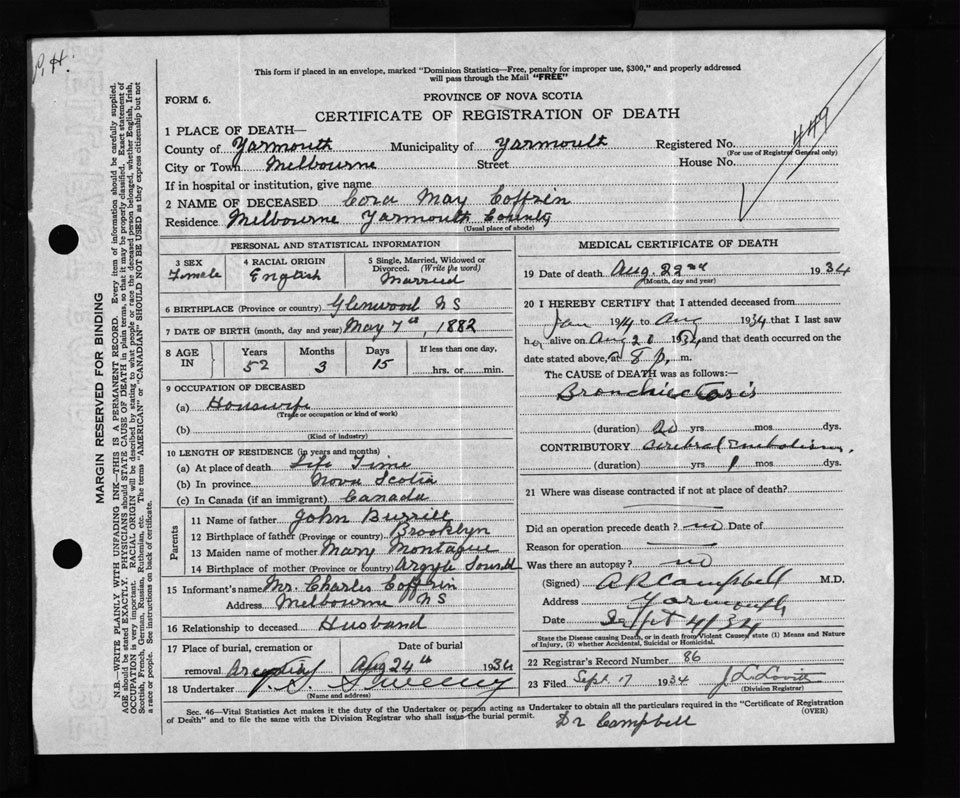 P.H.
This form if placed in an envelope, marked "Dominion Statistics—Free, penalty for improper use, $300," and properly addressed
will pass through the Mail "FREE"
FORM 6.
PROVINCE OF NOVA SCOTIA
CERTIFICATE OF REGISTRATION OF DEATH
1 PLACE OF DEATH—
County of Yarmouth Municipality of Yarmouth Registered No. 449
(For use of Registrar General only)
City or Town Melbourne Street House No.
If in hospital or institution, give name
2 NAME OF DECEASED Cora May Coffrin
Residence Melbourne Yarmouth County
(Usual place of abode)
PERSONAL AND STATISTICAL INFORMATION
3 SEX Female
4 RACIAL ORIGIN English
5 Single, Married, Widowed or
Divorced. (Write the word)
Married
6 BIRTHPLACE (Province or country) Glenwood NS
7 DATE OF BIRTH (month, day and year) May 7th, 1882
8 AGE IN
Years Months Days If less than one day,
52 3 15 hrs. or min.
9 OCCUPATION OF DECEASED
(a) Housewife
(Trade or occupation or kind of work)
(b)
(Kind of industry)
10 LENGTH OF RESIDENCE (in years and months)
(a) At place of death Life Time
(b) In province Nova Scotia
(c) In Canada (if an immigrant) Canada
Parents
11 Name of father John Burrill
12 Birthplace of father (Province or country) Brooklyn
13 Maiden name of mother Mary Montague
14 Birthplace of mother (Province or country) Argyle Sound
15 Informant's name Mr. Charles Coffrin
Address Melbourne NS
16 Relationship to deceased Husband
17 Place of burial, cremation or Date of burial
removal Arcadia Aug 24th 1934
18 Undertaker Sweeny
(Name and address)
MEDICAL CERTIFICATE OF DEATH
19 Date of death Aug. 22nd 1934
(Month, day and year)
20 I HEREBY CERTIFY that I attended deceased from
Jan 1914 to Aug 1934 that I last saw
her alive on Aug 20 1934, and that death occurred on the
date stated above, at 8 P. m.
The CAUSE of DEATH was as follows:—
Bronchiectasis
(duration) 20 yrs mos dys.
CONTRIBUTORY Cerebral Embolism
(duration) yrs 1 mos dys.
21 Where was disease contracted if not at place of death?
Did an operation precede death? no Date of
Reason for operation
Was there an autopsy? no
(Signed) A R Campbell M.D.
Address Yarmouth
Date Sept 4/34
State the Disease causing Death, or in death from Violent Causes state (1) Means and Nature
of Injury, (2) whether Accidental, Suicidal or Homicidal.
22 Registrar's Record Number 86
23 Filed Sept. 17 1934 J. L. Lovitt
(Division Registrar)
Sec. 46—Vital Statistics Act makes it the duty of the Undertaker or person acting as Undertaker to obtain all the particulars required in the "Certificate of Registration
of Death" and to file the same with the Division Registrar who shall issue the burial permit. (OVER)
Dr Campbell
MARGIN RESERVED FOR BINDING
N.B.—WRITE PLAINLY WITH UNFADING INK—THIS IS A PERMANENT RECORD. Every item of information should be carefully supplied.
AGE should be stated EXACTLY. PHYSICIANS should STATE CAUSE OF DEATH in plain terms, so that it may be properly classified. Exact statement of
OCCUPATION is very important. RACIAL ORIGIN will be described by stating to what people or race the deceased person belonged, whether English, Irish,
Scottish, French, German, Russian, Ruthenian, etc. The terms "AMERICAN" or "CANADIAN" SHOULD NOT BE USED as they express citizenship but not
a race or people. See instructions on back of certificate.